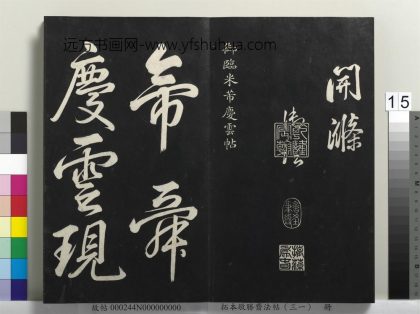 远方书画网- www.yfshuhua.com
開滌
御臨米芾慶雲帖
帝舜
慶雲現
15
故帖 000244N000000000 拓本敬勝齋法帖（三一） 冊